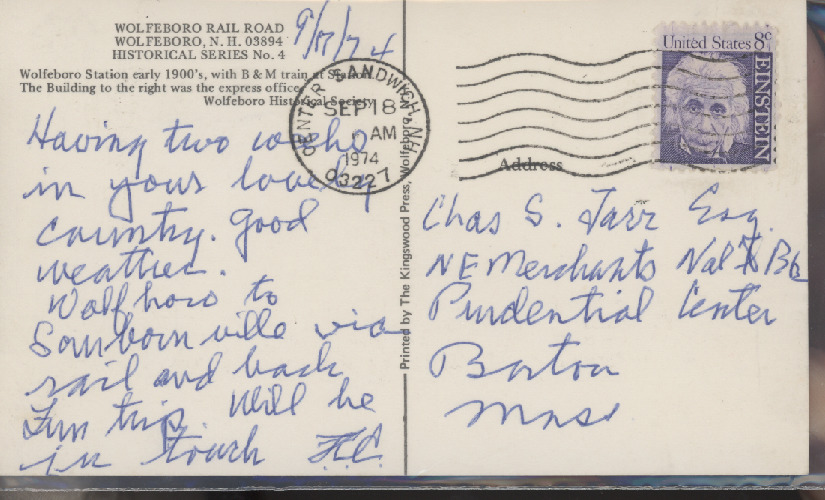 WOLFEBORO RAIL ROAD
WOLFEBORO, N. H. 03894
HISTORICAL SERIES No. 4
Wolfeboro Station early 1900's, with B & M train at Station
The Building to the right was the express office.
Wolfeboro Historical Society
9/17/74
Having two weeks
in your lovely
country. Good
weather.
Wolfboro to
Sanbornville via
rail and back
Fun trip Will be
in touch
Printed by The Kingswood Press, Wolfeboro, NH
CENTER SANDWICH, NH
SEP 18
AM
1974
03227
United States 8c
EINSTEIN
Address
Chas S. Tarr Esq.
NE Merchants Nat'l Bk
Prudential Center
Boston
Mass